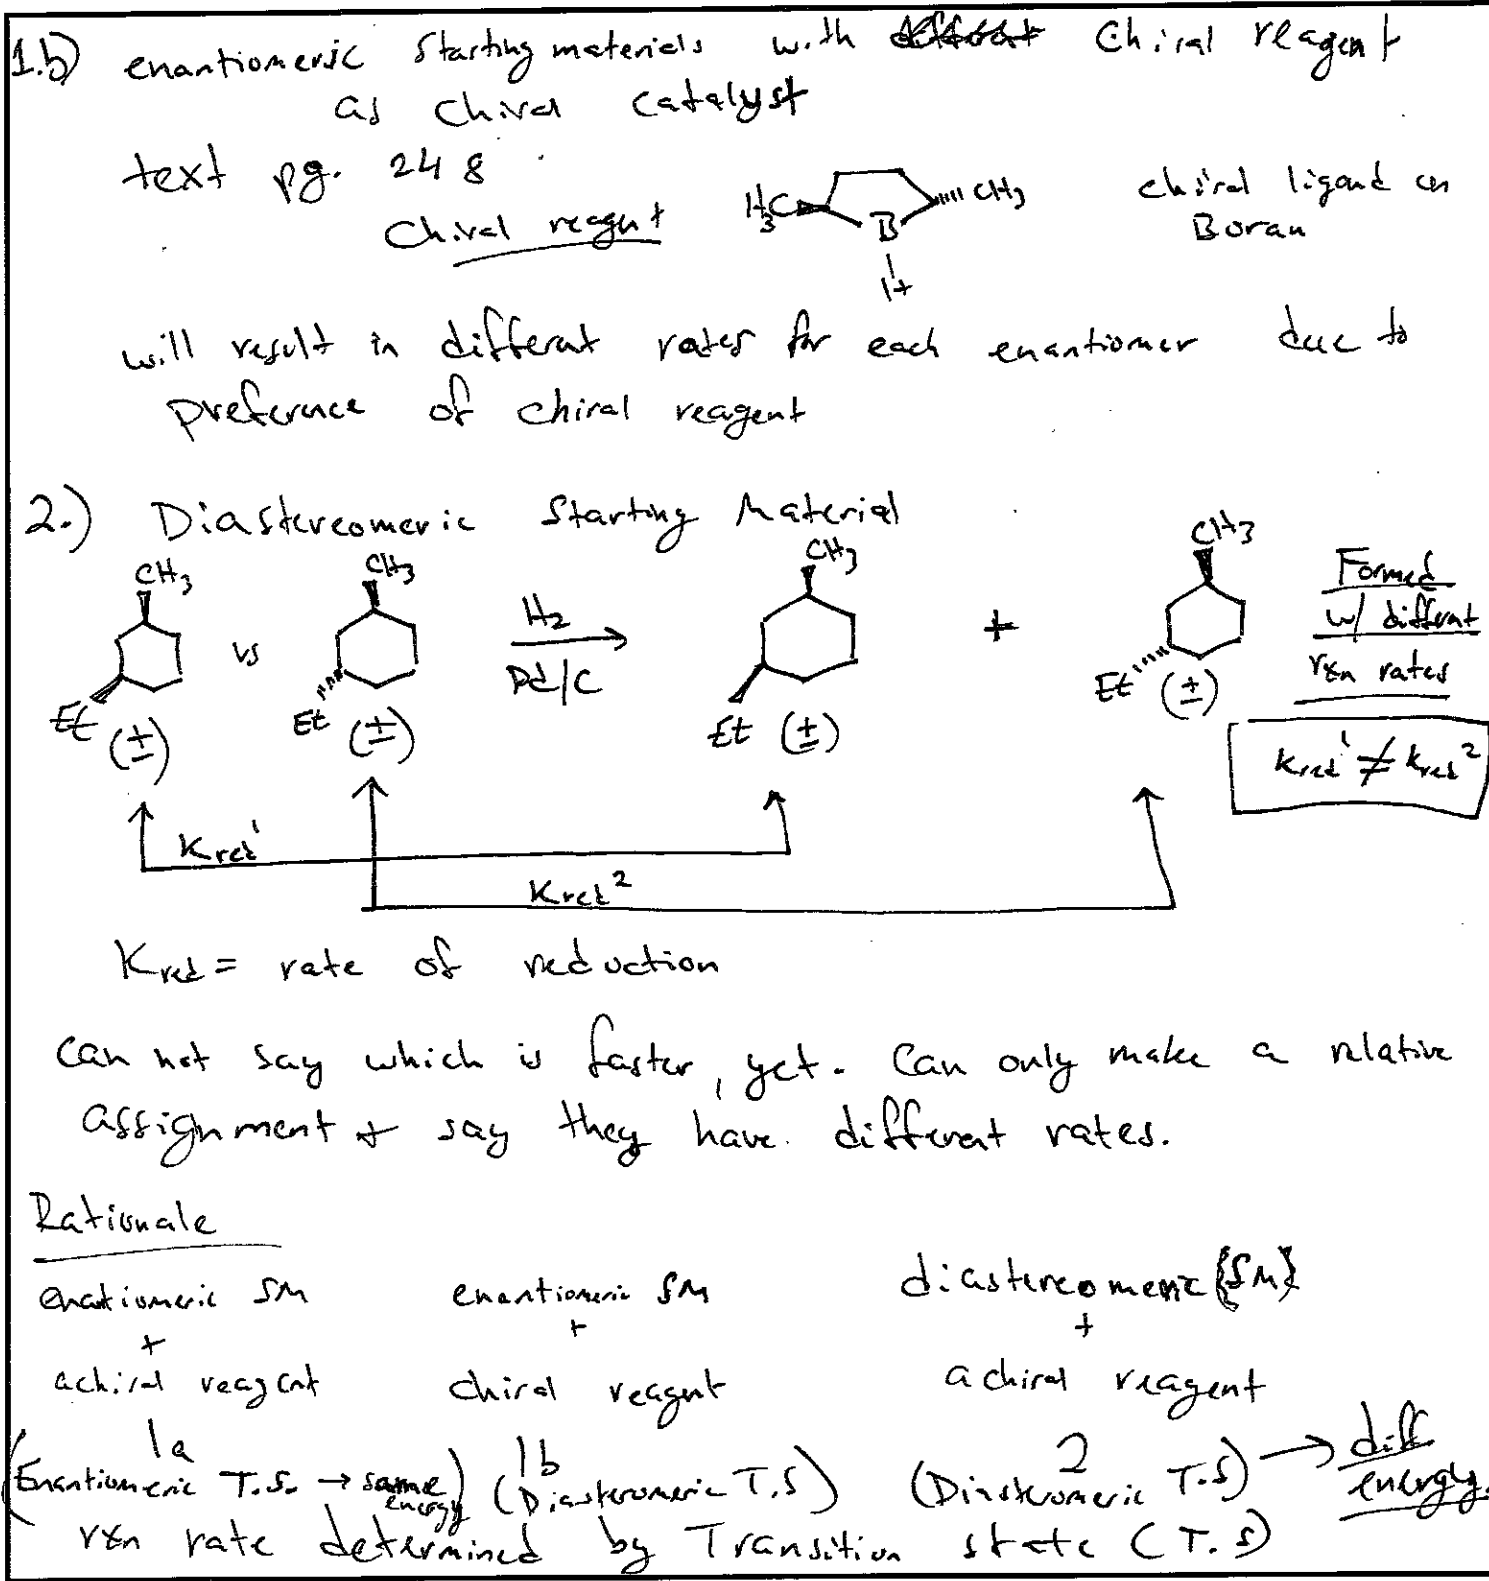 1.b) enantiomeric starting materials with chiral reagent
as chiral catalyst
text pg. 248
chiral reagent
H3C B CH3
H
chiral ligand on
Boran
will result in different rates for each enantiomer due to
preference of chiral reagent
2.) Diastereomeric Starting Material
CH3 CH3 CH3 CH3
vs H2 + Formed
Pd/C w/ different
rxn rates
Et Et Et Et
(±) (±) (±) (±)
kred¹ ≠ kred²
Kred¹
Kred²
Kred = rate of reduction
can not say which is faster, yet. Can only make a relative
assignment + say they have different rates.
Rationale
enantiomeric SM enantiomeric SM diastereomeric {SM}
+ + +
achiral reagent chiral reagent achiral reagent
1a 1b 2
(Enantiomeric T.S. → same energy) (Diasteromeric T.S) (Diasteromeric T.S) → diff energy.
rxn rate determined by Transition state (T.S)